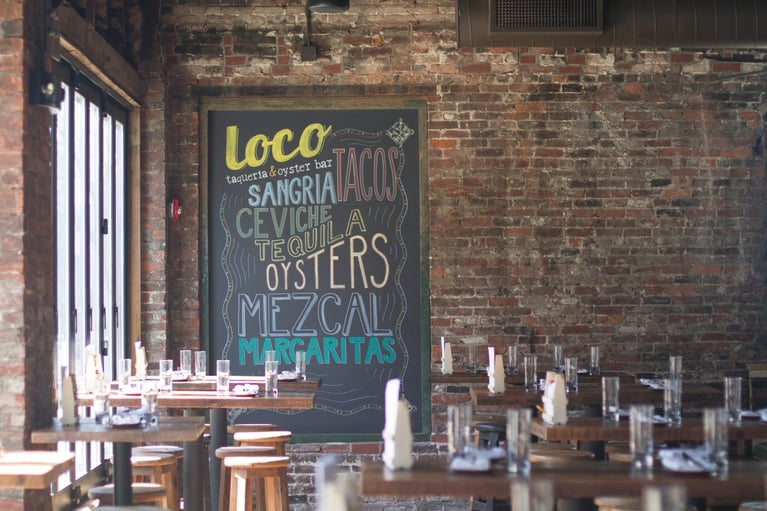 loco
taqueria & oyster bar
SANGRIA TACOS
CEVICHE
TEQUILA
OYSTERS
MEZCAL
MARGARITAS